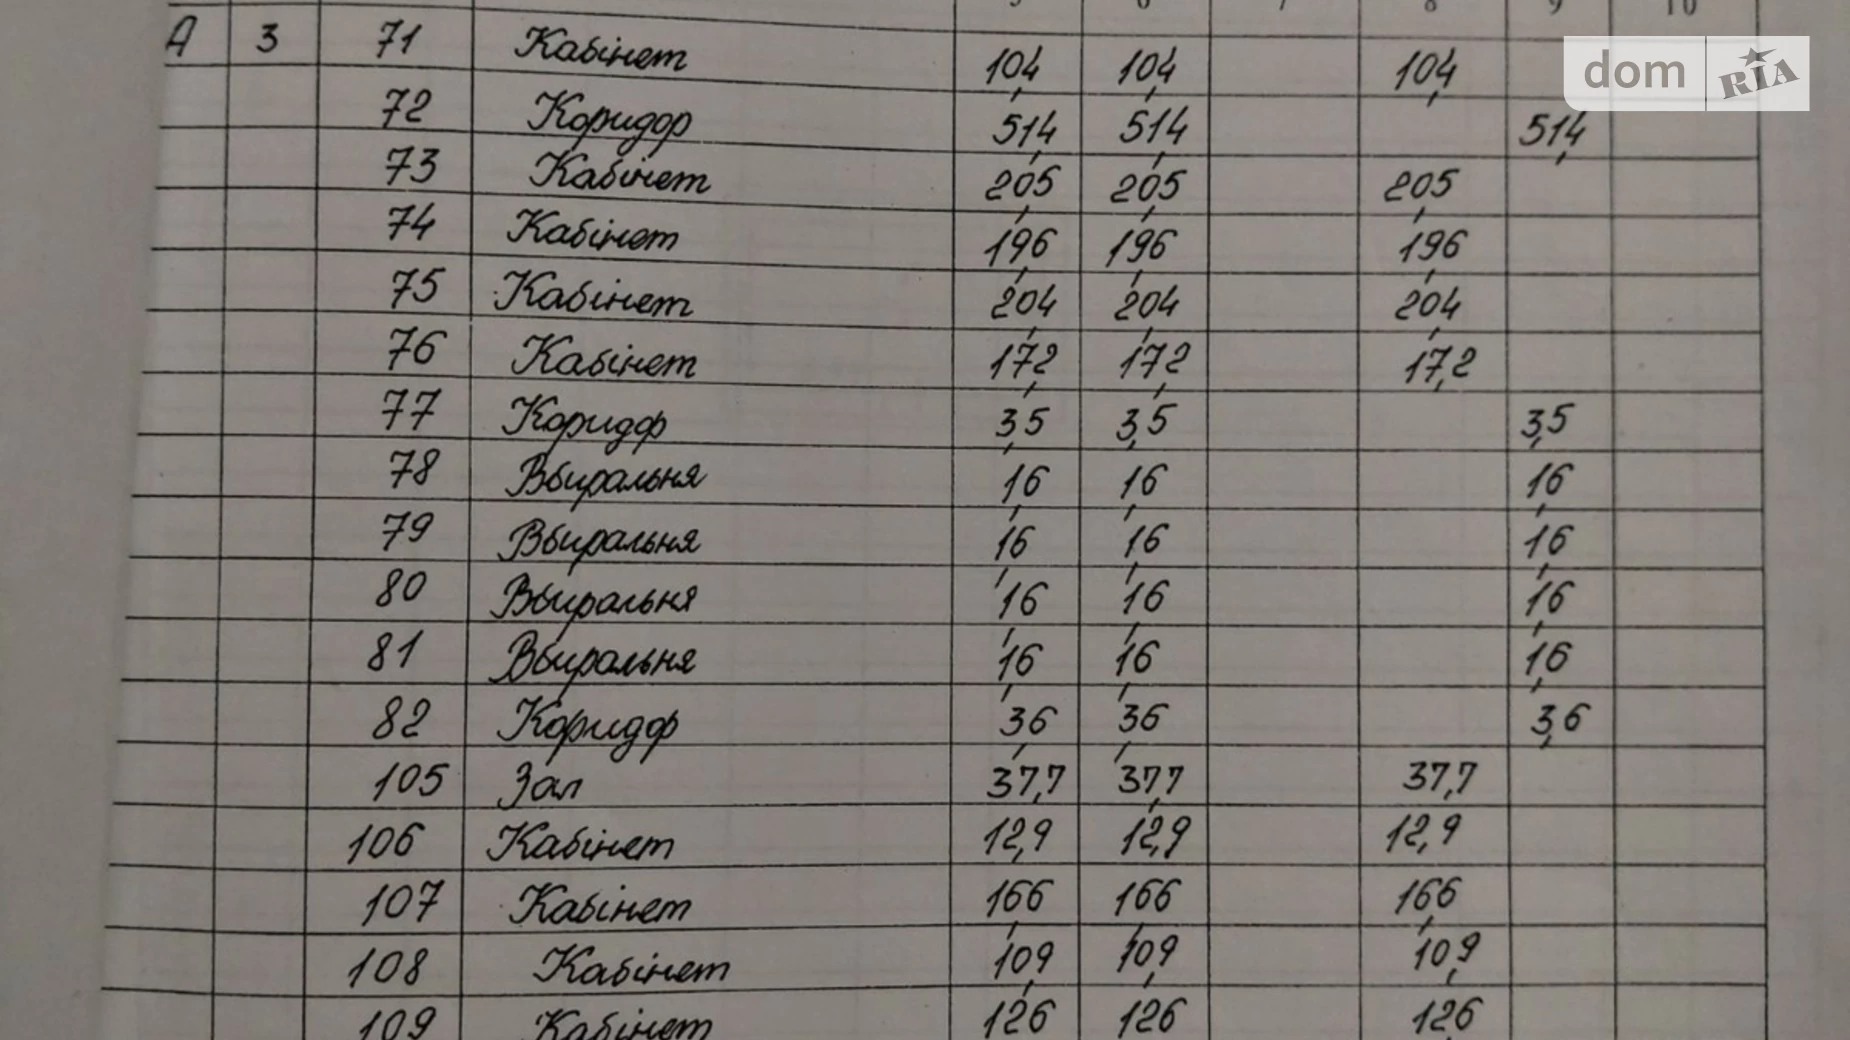 5 6 7 8 9 10
А 3 71 Кабінет 10,4 10,4 10,4
72 Коридор 51,4 51,4 51,4
73 Кабінет 20,5 20,5 20,5
74 Кабінет 19,6 19,6 19,6
75 Кабінет 20,4 20,4 20,4
76 Кабінет 17,2 17,2 17,2
77 Коридор 3,5 3,5 3,5
78 Вбиральня 1,6 1,6 1,6
79 Вбиральня 1,6 1,6 1,6
80 Вбиральня 1,6 1,6 1,6
81 Вбиральня 1,6 1,6 1,6
82 Коридор 3,6 3,6 3,6
105 Зал 37,7 37,7 37,7
106 Кабінет 12,9 12,9 12,9
107 Кабінет 16,6 16,6 16,6
108 Кабінет 10,9 10,9 10,9
109 Кабінет 12,6 12,6 12,6
dom RIA